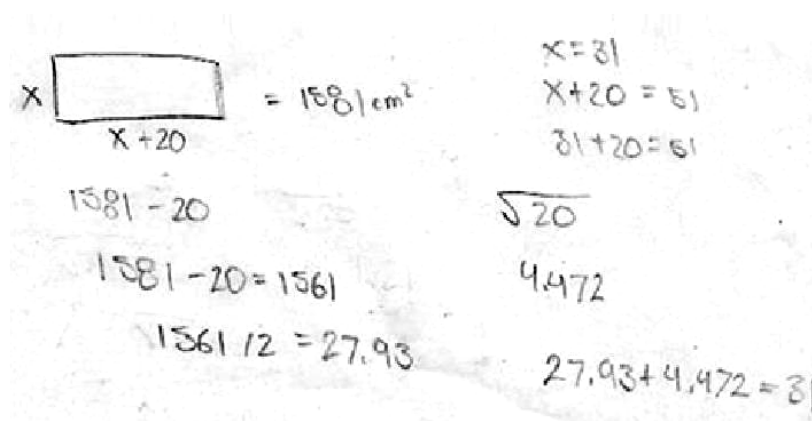 x = 1581 cm²
x+20
1581 - 20
1581 - 20 = 1561
1561 / 2 = 27.93
x = 31
x+20 = 51
31+20 = 51
√20
4.472
27.93 + 4.472 = 3